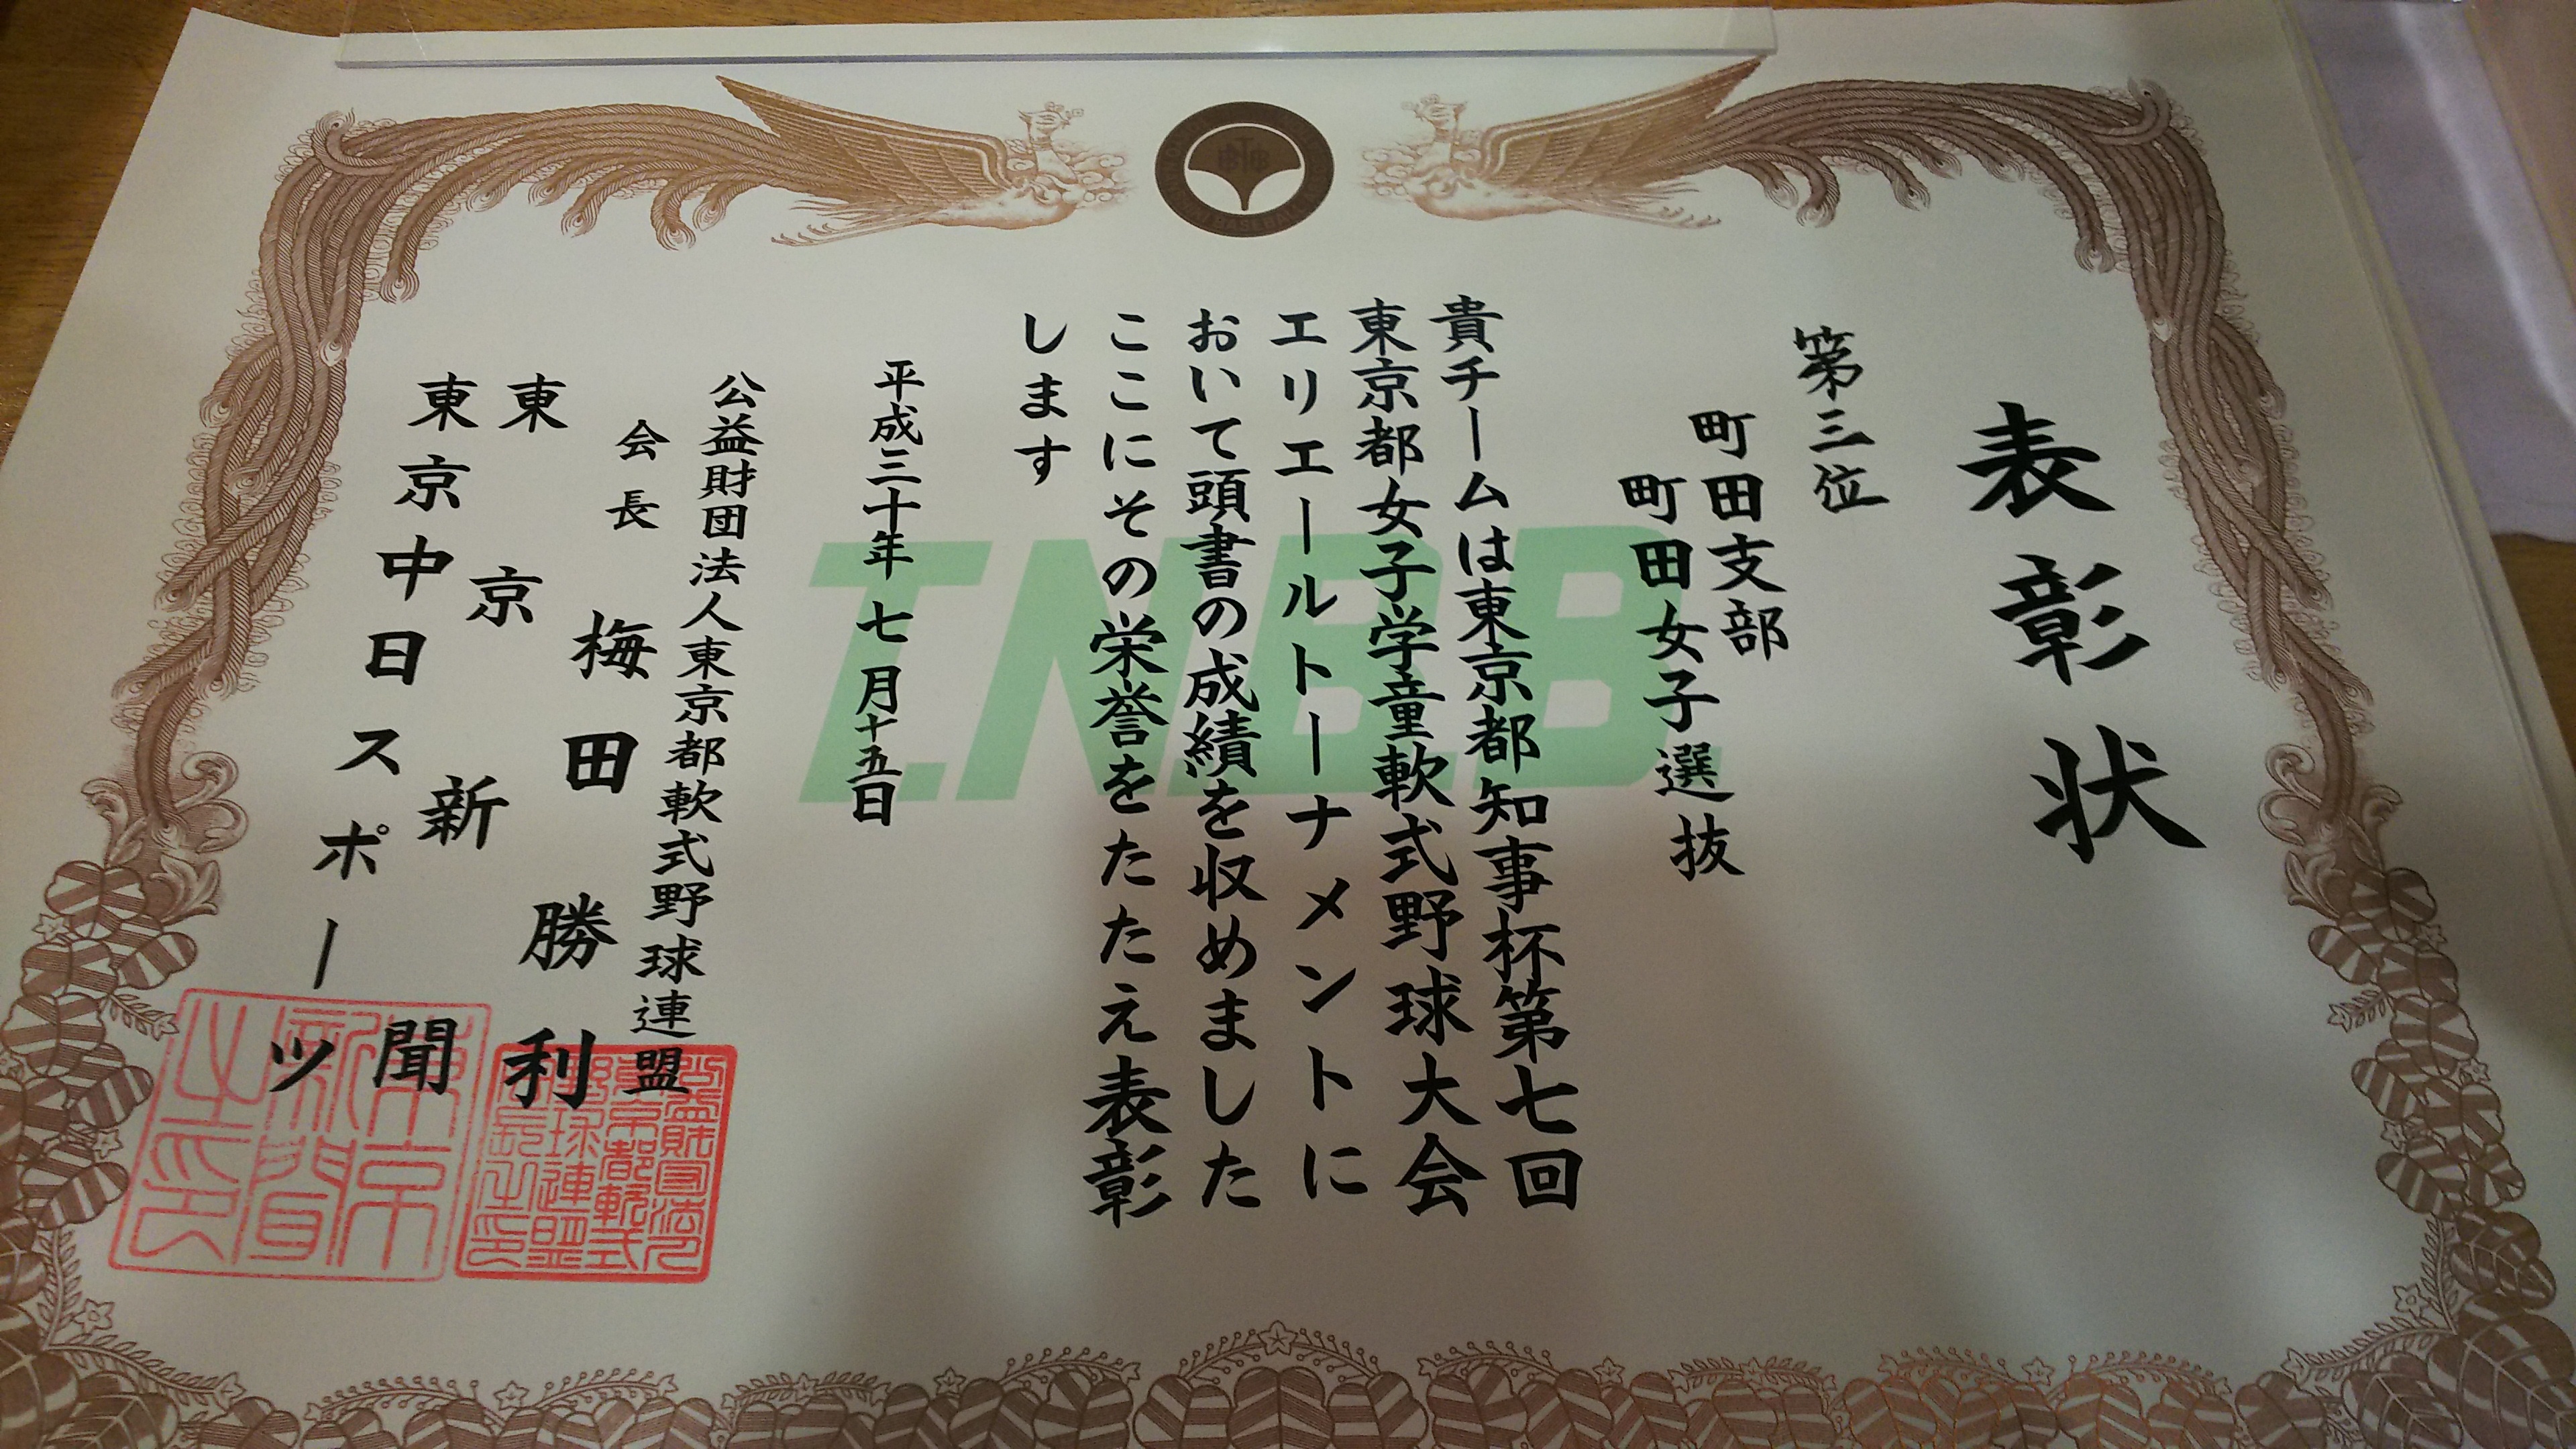 表彰状
第三位
町田支部
町田女子選抜
貴チームは東京都知事杯第七回
東京都女子学童軟式野球大会
エリエールトーナメントに
おいて頭書の成績を収めました
ここにその栄誉をたたえ表彰
します
平成三十年七月十五日
公益財団法人東京都軟式野球連盟
会長 梅田勝利
東京新聞
東京中日スポーツ
T.N.B.B.